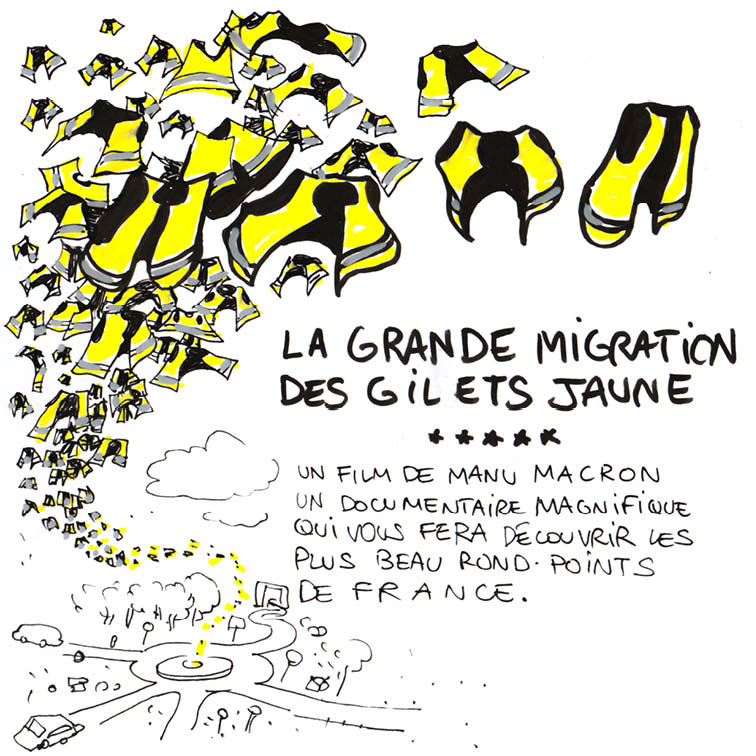 LA GRANDE MIGRATION
DES GILETS JAUNE
UN FILM DE MANU MACRON
UN DOCUMENTAIRE MAGNIFIQUE
QUI VOUS FERA DÉCOUVRIR LES
PLUS BEAU ROND-POINTS
DE FRANCE.